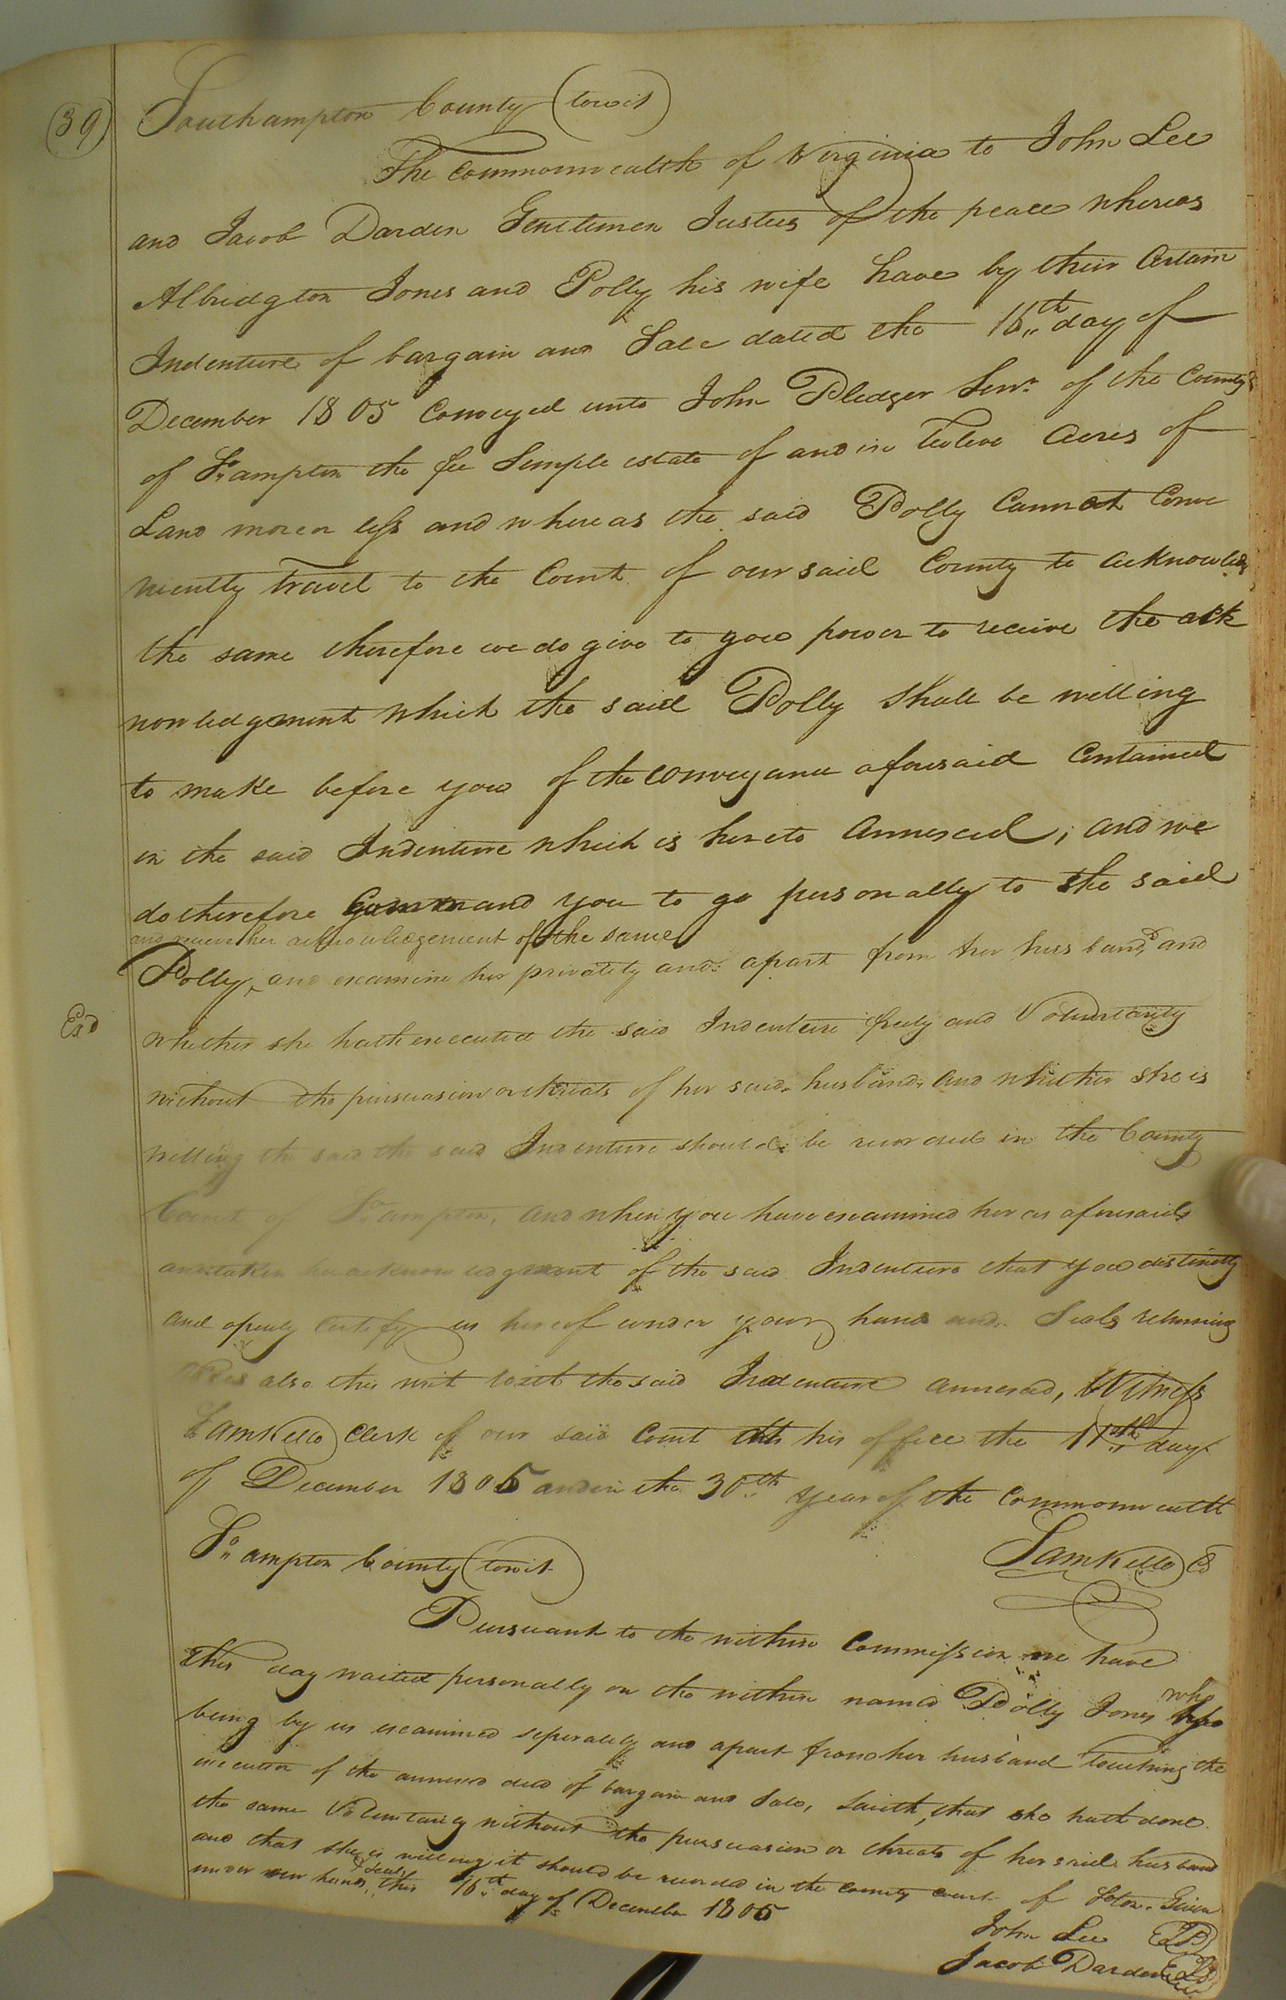 39
Southampton County (towit)
The Commonwealth of Virginia to John Lee
and Jacob Darden Gentlemen Justices of the peace whereas
Albridgton Jones and Polly his wife have by their Certain
Indenture of bargain and Sale dated the 16th day of
December 1805 Conveyed unto John Pledger Senr. of the County
of So.ampton the fee Simple estate of and in twelve Acres of
Land more or less and whereas the said Polly Cannot Conve
niently travel to the Court of our said County to acknowledge
the same therefore we do give to you power to receive the ack
nowledgement which the said Polly Shall be willing
to make before you of the conveyance aforesaid Contained
in the said Indenture which is hereto annexed, and we
do therefore Command you to go personally to the said
and receive her acknowledgement of the same
Polly, and examine her privately and apart from her husband, and
whether she hath executed the said Indenture freely and Voluntarily
without the persuasion or threats of her said husband, and whether she is
willing the said the said Indenture should be recorded in the County
Exd
Court of So.ampton, and when you have examined her as aforesaid
and taken her acknowledgment of the said Indenture that you distinctly
and openly Certify us hereof under your hands and Seals returning
also this writ with the said Indenture annexed, Witness
SamKello Clerk of our said Court at his office the 11th day
of December 1805 and in the 30th year of the Commonwealth
SamKello Cl
So.ampton County (towit)
Pursuant to the within Commission we have
this day waited personally on the within named Polly Jones who
being by us examined seperately and apart from her husband touching the
execution of the annexed deed of bargain and Sale, Saith, that she hath done
the same Voluntarily without the persuasion or threats of her said husband
and that she is willing it should be recorded in the County Court of Soton. Given
under our hands & Seals this 16th day of December 1805
John Lee (LS)
Jacob Darden (LS)